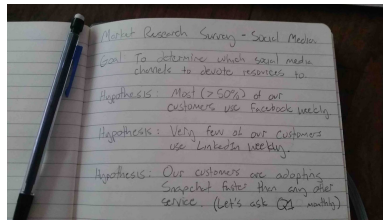 Market Research Survey - Social Media
Goal To determine which social media
channels to devote resources to
Hypothesis: Most (>50%) of our
customers use Facebook weekly
Hypothesis: Very few of our customers
use LinkedIn weekly.
Hypothesis: Our customers are adopting
Snapchat faster than any other
service. (Let's ask monthly)